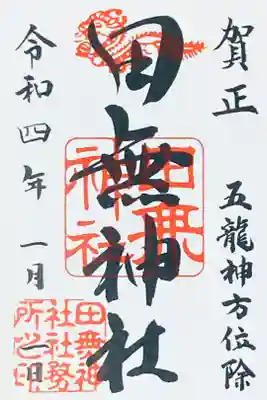 賀正
五龍神方位除
田無神社
田無
神社
令和四年 一月 一日
田無神
社社務
所之印